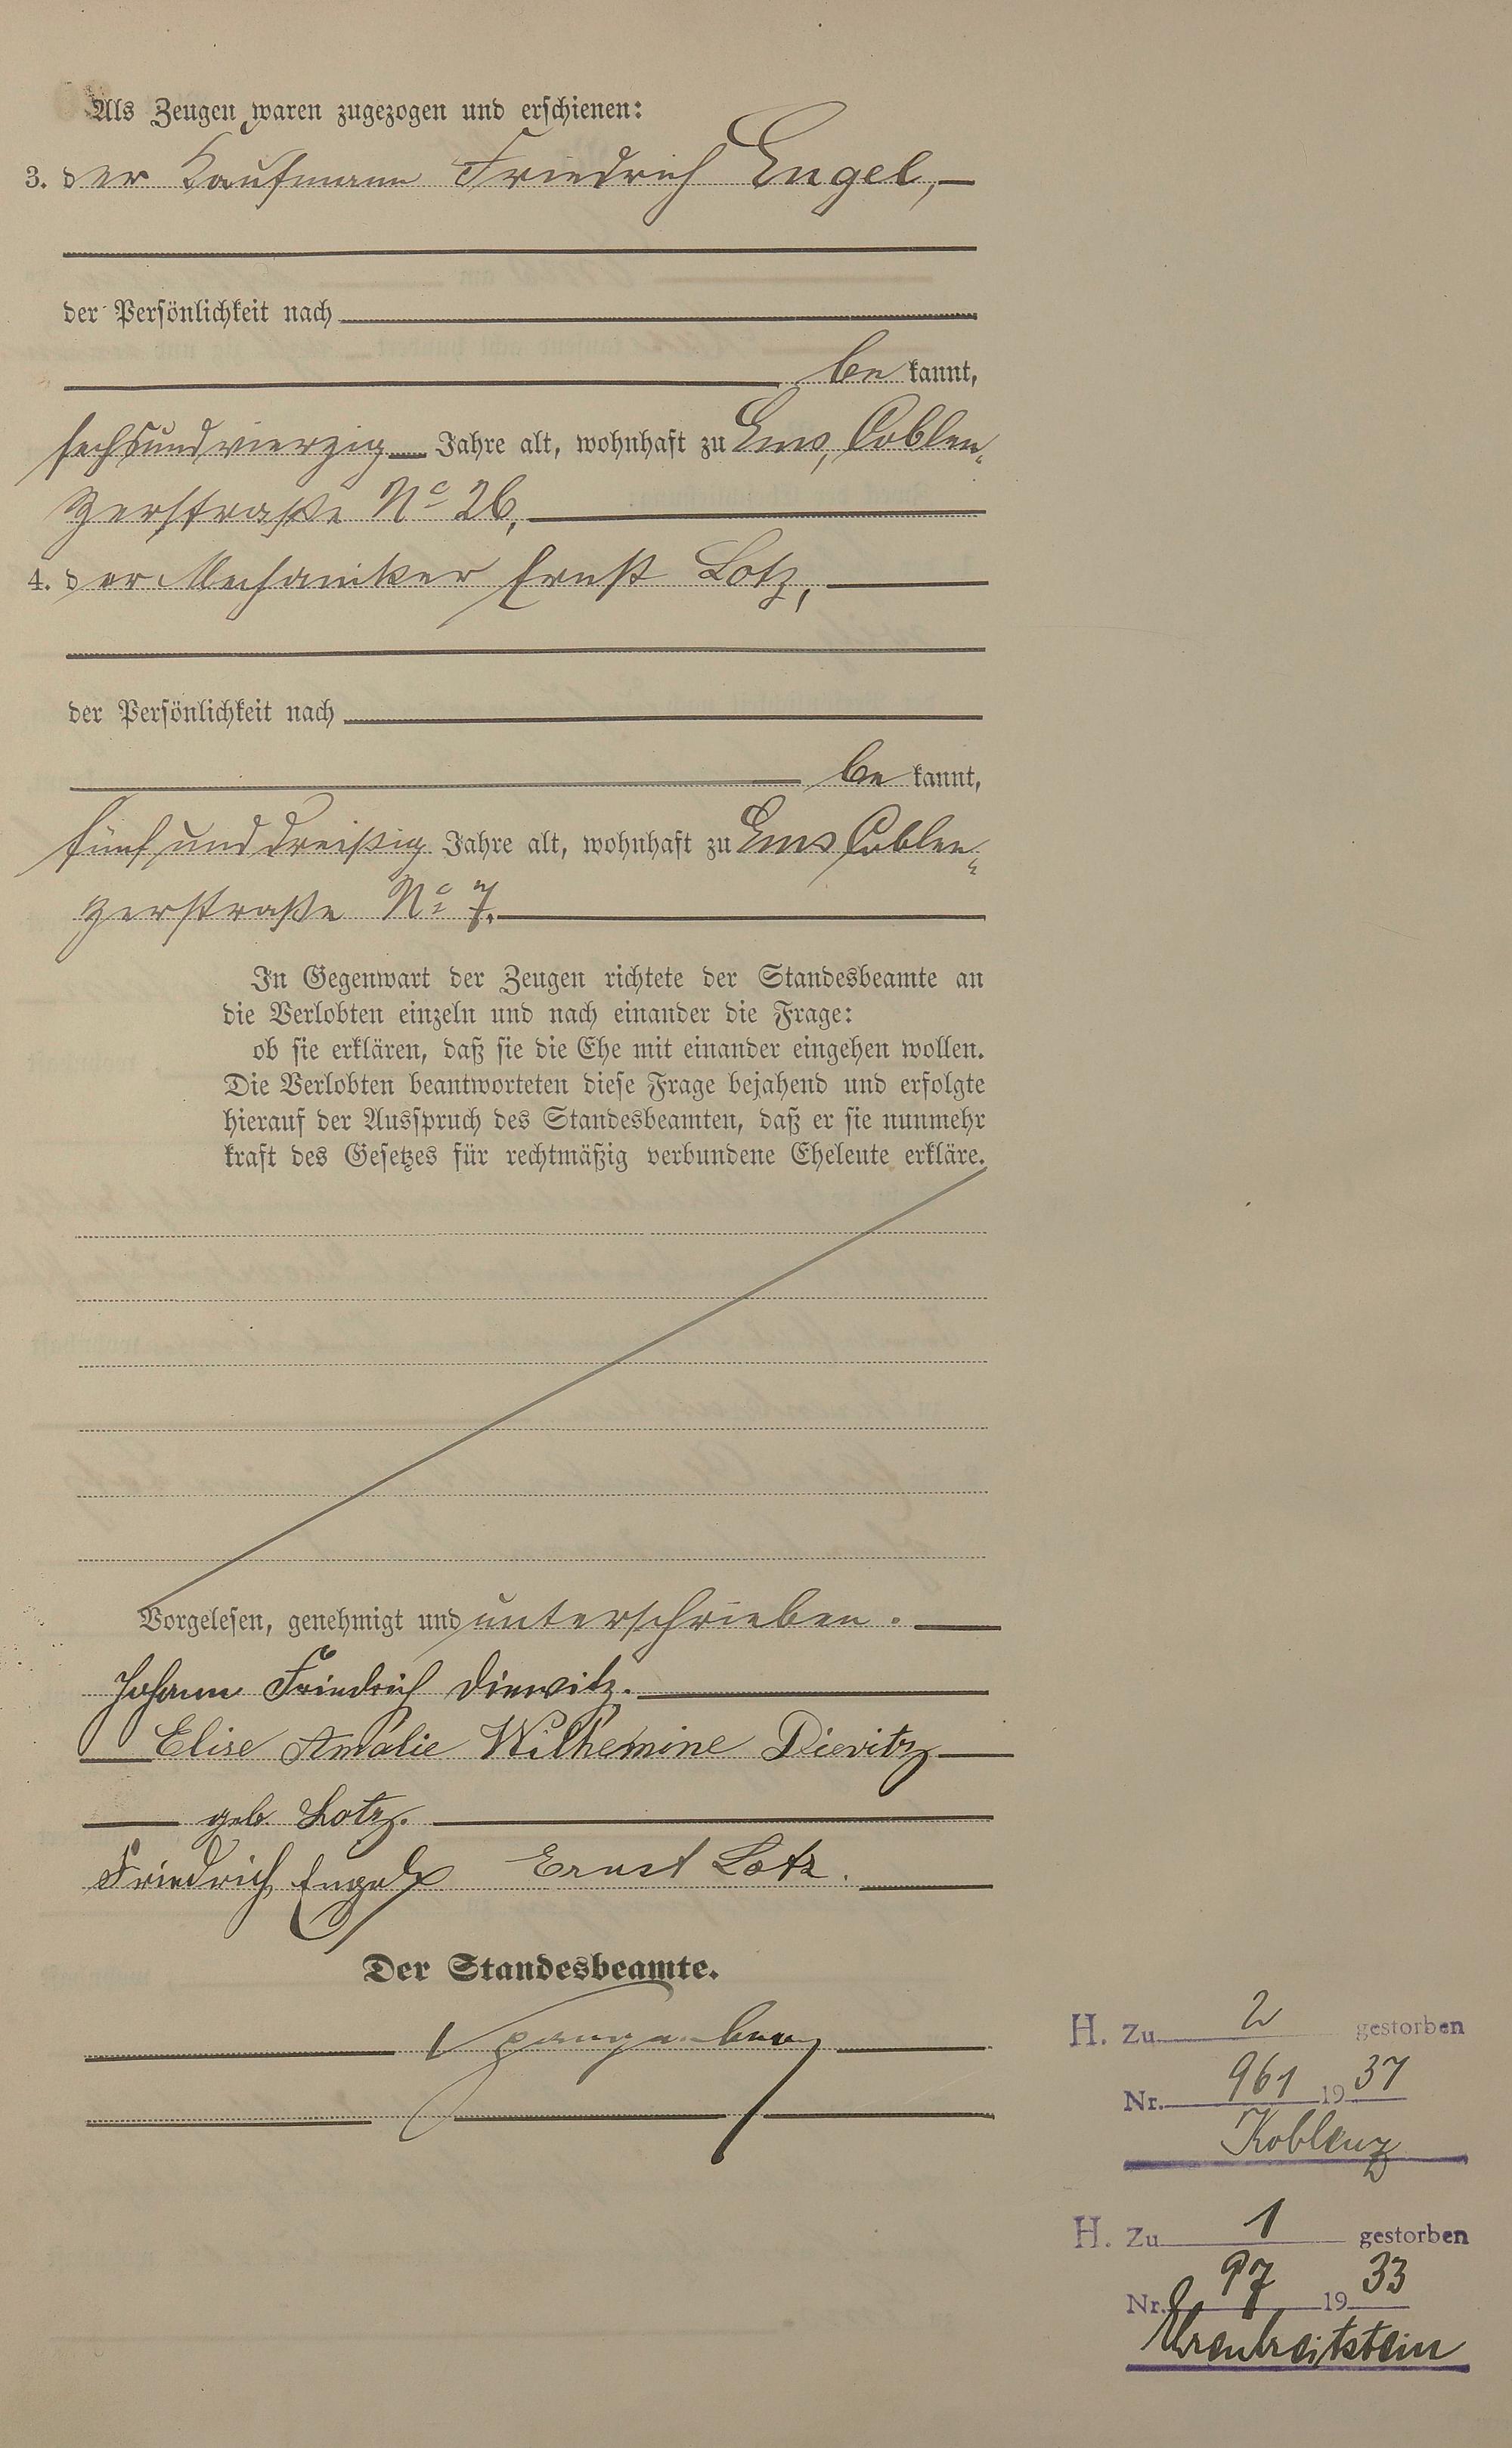 Als Zeugen waren zugezogen und erschienen:
3. der Kaufmann Friedrich Engel,
der Persönlichkeit nach
bekannt,
sechsundvierzig Jahre alt, wohnhaft zu Ems, Coblen-
zerstraße No 26,
4. der Mechaniker Ernst Lotz,
der Persönlichkeit nach
bekannt,
fünfunddreißig Jahre alt, wohnhaft zu Ems Coblen-
zerstraße No 7.
In Gegenwart der Zeugen richtete der Standesbeamte an
die Verlobten einzeln und nach einander die Frage:
ob sie erklären, daß sie die Ehe mit einander eingehen wollen.
Die Verlobten beantworteten diese Frage bejahend und erfolgte
hierauf der Ausspruch des Standesbeamten, daß er sie nunmehr
kraft des Gesetzes für rechtmäßig verbundene Eheleute erkläre.
Vorgelesen, genehmigt und unterschrieben.
Johann Friedrich Diewitz.
Elise Amalie Wilhemine Dievitz
geb. Lotz.
Friedrich Engel Ernst Lotz.
Der Standesbeamte.
Spangenberg
H. Zu 2 gestorben
Nr. 961 1937
Koblenz
H. Zu 1 gestorben
Nr. 97 1933
Ehrenbreitstein